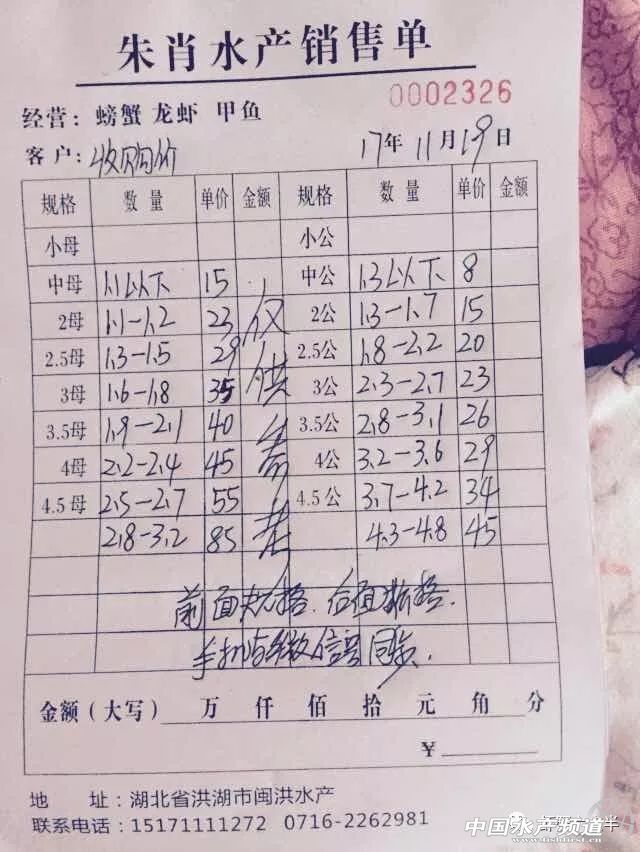 朱肖水产销售单
0002326
经营：螃蟹 龙虾 甲鱼
客户：收购价 17年11月19日
规格 数量 单价 金额 规格 数量 单价 金额
小母 小公
中母 1.1以下 15 中公 1.3以下 8
2母 1.1-1.2 23 2公 1.3-1.7 15
2.5母 1.3-1.5 29 2.5公 1.8-2.2 20
3母 1.6-1.8 35 3公 2.3-2.7 23
3.5母 1.9-2.1 40 3.5公 2.8-3.1 26
4母 2.2-2.4 45 4公 3.2-3.6 29
4.5母 2.5-2.7 55 4.5公 3.7-4.2 34
2.8-3.2 85 4.3-4.8 45
仅供参考
前面规格.后面价格.
手机与微信号同步.
金额（大写） 万 仟 佰 拾 元 角 分
¥
地 址：湖北省洪湖市闽洪水产
联系电话：15171111272 0716-2262981
中国水产频道
www.fishfirst.cn